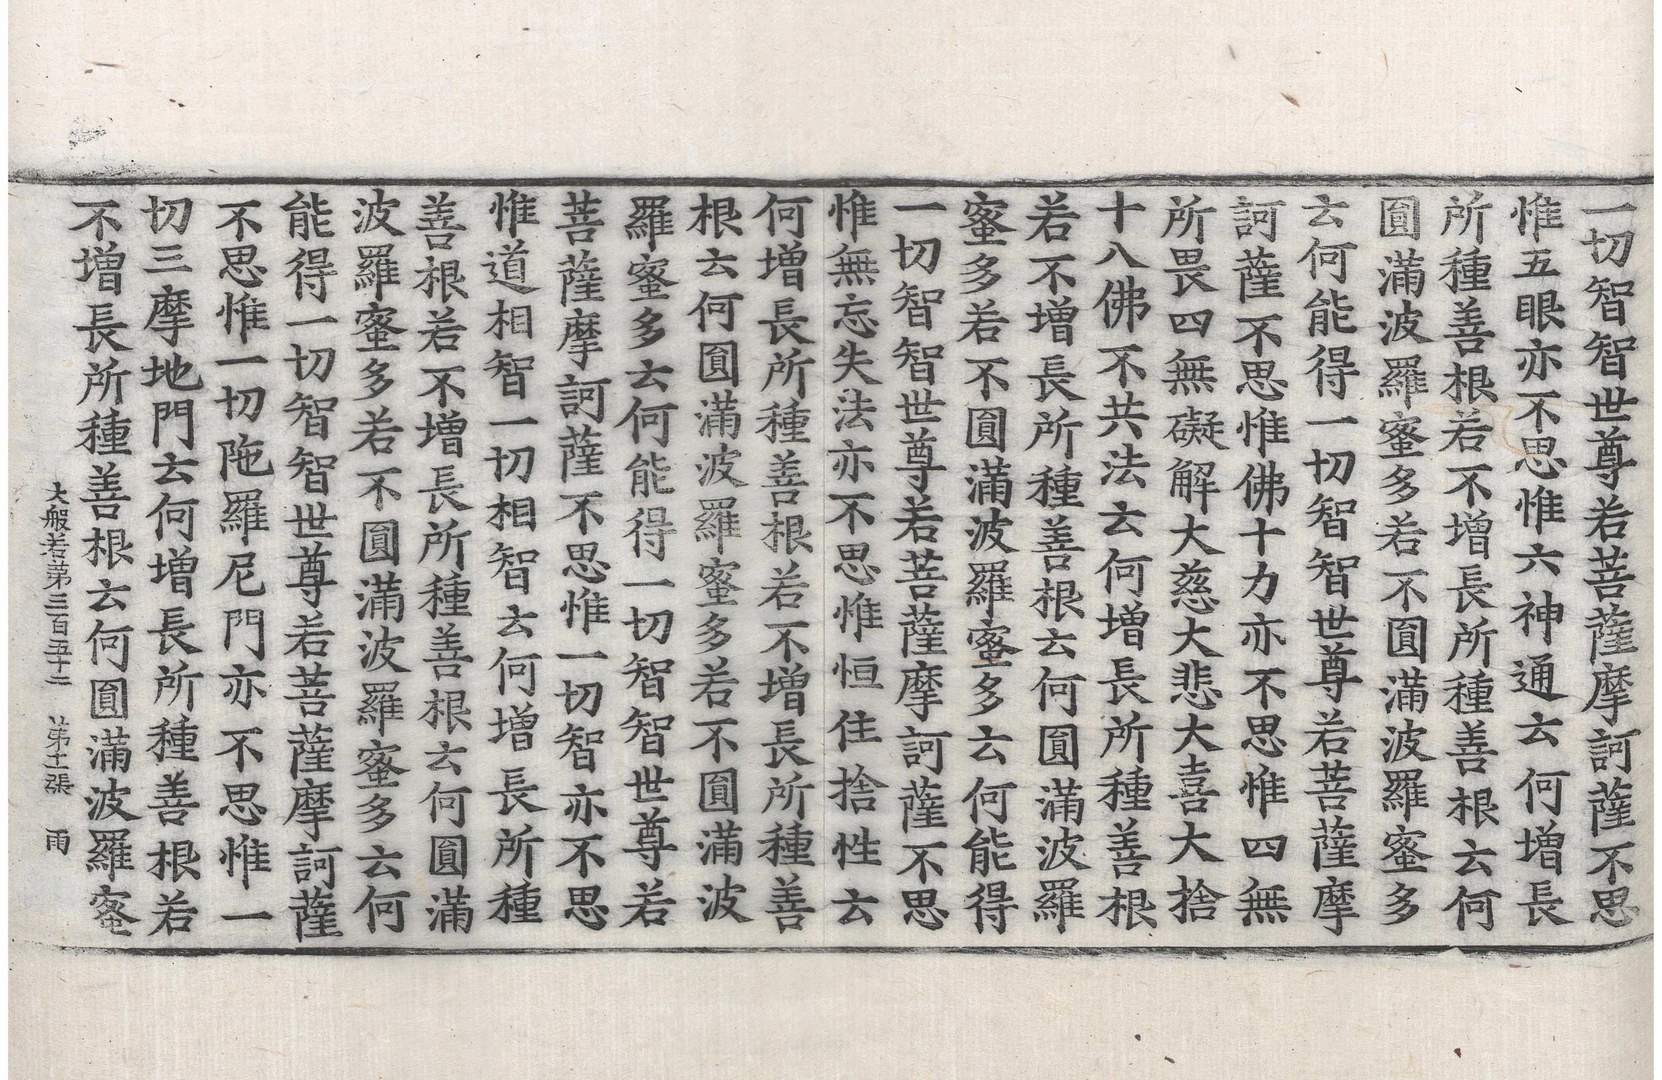 一切智智世尊若菩薩摩訶薩不思
惟五眼亦不思惟六神通云何增長
所種善根若不增長所種善根云何
圓滿波羅蜜多若不圓滿波羅蜜多
云何能得一切智智世尊若菩薩摩
訶薩不思惟佛十力亦不思惟四無
所畏四無礙解大慈大悲大喜大捨
十八佛不共法云何增長所種善根
若不增長所種善根云何圓滿波羅
蜜多若不圓滿波羅蜜多云何能得
一切智智世尊若菩薩摩訶薩不思
惟無忘失法亦不思惟恒住捨性云
何增長所種善根若不增長所種善
根云何圓滿波羅蜜多若不圓滿波
羅蜜多云何能得一切智智世尊若
菩薩摩訶薩不思惟一切智亦不思
惟道相智一切相智云何增長所種
善根若不增長所種善根云何圓滿
波羅蜜多若不圓滿波羅蜜多云何
能得一切智智世尊若菩薩摩訶薩
不思惟一切陁羅尼門亦不思惟一
切三摩地門云何增長所種善根若
不增長所種善根云何圓滿波羅蜜
大般若第三百五十二 第十一張 雨